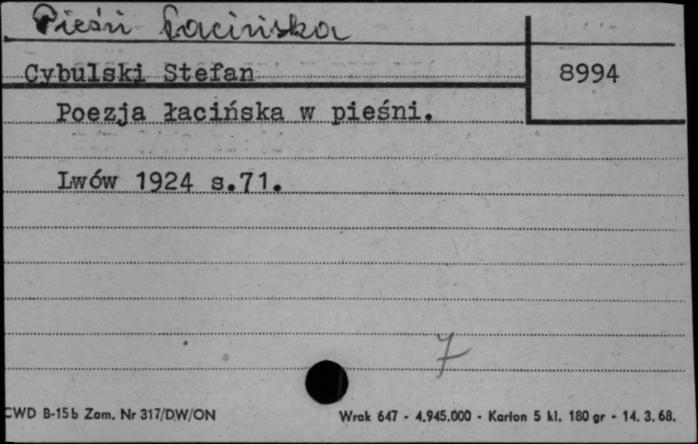 Pieśń łacińska
Cybulski Stefan
8994
Poezja łacińska w pieśni.
Lwów 1924 s.71.
7
CWD B-15b Zam. Nr 317/DW/ON
Wrak 647 - 4.945.000 - Karton 5 kl. 180 gr - 14. 3. 68.